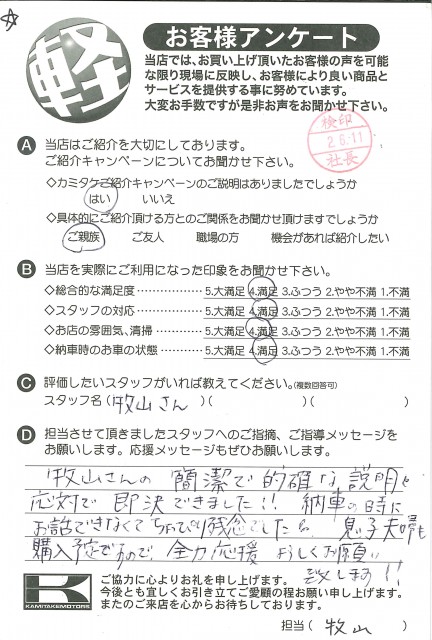 軽
お客様アンケート
当店では、お買い上げ頂いたお客様の声を可能
な限り現場に反映し、お客様により良い商品と
サービスを提供する事に努めています。
大変お手数ですが是非お声をお聞かせ下さい。
検印
2.6.11
社長
A 当店はご紹介を大切にしております。
ご紹介キャンペーンについてお聞かせ下さい。
◇カミタケご紹介キャンペーンのご説明はありましたでしょうか
はい いいえ
◇具体的にご紹介頂ける方とのご関係をお聞かせ頂けますでしょうか
ご親族 ご友人 職場の方 機会があれば紹介したい
B 当店を実際にご利用になった印象をお聞かせ下さい。
◇総合的な満足度………………5.大満足 4.満足 3.ふつう 2.やや不満 1.不満
◇スタッフの対応………………5.大満足 4.満足 3.ふつう 2.やや不満 1.不満
◇お店の雰囲気、清掃…………5.大満足 4.満足 3.ふつう 2.やや不満 1.不満
◇納車時のお車の状態…………5.大満足 4.満足 3.ふつう 2.やや不満 1.不満
C 評価したいスタッフがいれば教えてください。(複数回答可)
スタッフ名(牧山さん)( )( )
D 担当させて頂きましたスタッフへのご指摘、ご指導メッセージを
お願いします。応援メッセージもぜひお願いします。
牧山さんの 簡潔で的確な説明と
応対で即決できました!! 納車の時に
お話できなくてちょっぴり残念でした。 息子夫婦も
購入予定ですので、全力応援 よろしくお願い
致します!!
KAMITAKEMOTORS
ご協力に心よりお礼を申し上げます。
今後とも宜しくお引き立てご愛顧の程お願い申し上げます。
またのご来店を心からお待ちしております。
担当(牧山)